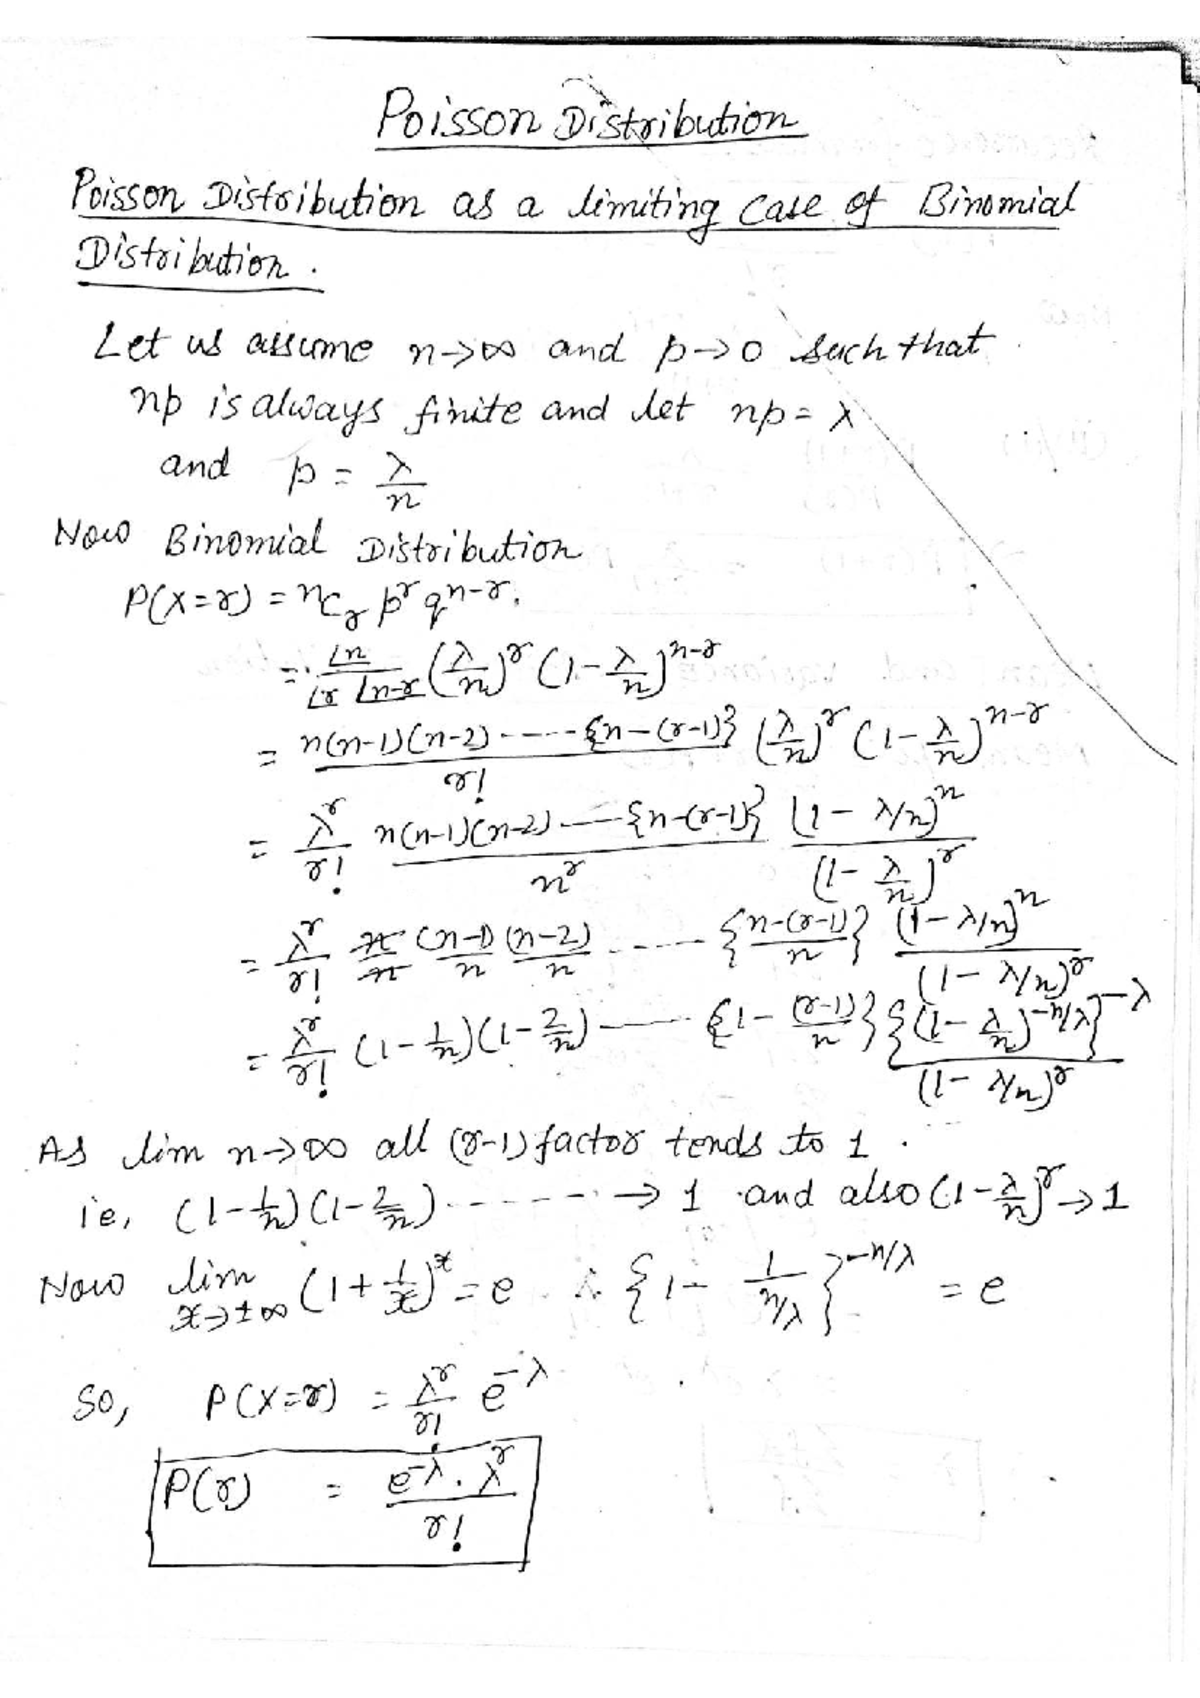 Poisson Distribution
Poisson Distribution as a limiting case of Binomial
Distribution.
Let us assume n→∞ and p→0 such that
np is always finite and let np = λ
and p = λ/n
Now Binomial Distribution
P(X=r) = nCr p^r q^(n-r).
= ∟n / (∟r ∟n-r) (λ/n)^r (1-λ/n)^(n-r)
= n(n-1)(n-2) ----- {n-(r-1)} / r! (λ/n)^r (1-λ/n)^(n-r)
= λ^r/r! n(n-1)(n-2) --- {n-(r-1)} / n^r (1-λ/n)^n / (1-λ/n)^r
= λ^r/r! n/n (n-1)/n (n-2)/n ------ {n-(r-1)/n} (1-λ/n)^n / (1-λ/n)^r
= λ^r/r! (1-1/n)(1-2/n) ------ {1-(r-1)/n} {(1-λ/n)^(-n/λ)}^(-λ) / (1-λ/n)^r
As lim n→∞ all (r-1) factor tends to 1.
ie, (1-1/n)(1-2/n) ------→ 1 and also (1-λ/n)^r → 1
Now lim x→±∞ (1+1/x)^x = e ∴ {1- 1/(n/λ)}^(-n/λ) = e
So, P(X=r) = λ^r/r! e^(-λ)
P(r) = e^(-λ) . λ^r / r!